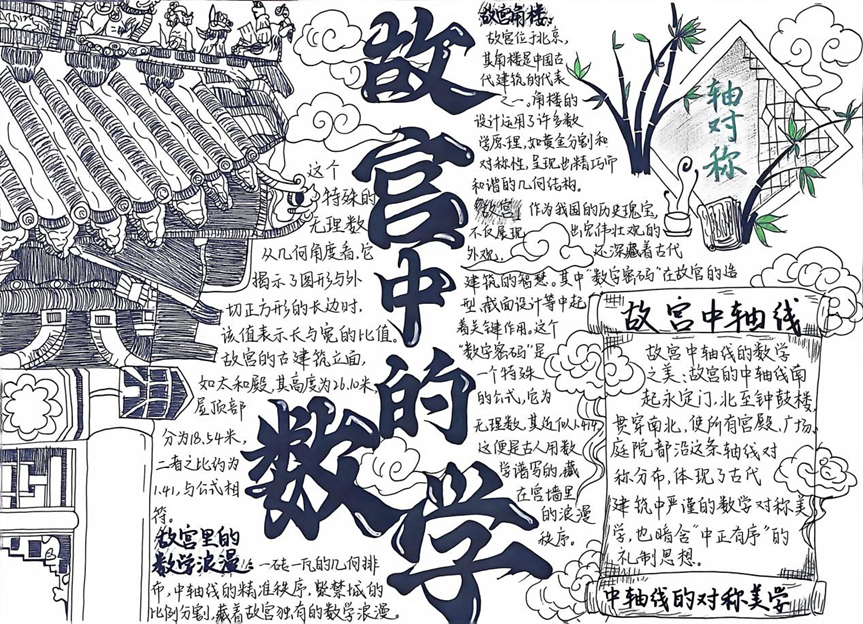 故宫中的数学
故宫角楼
故宫位于北京,
其角楼是中国古
代建筑的代表
之一。角楼的
设计运用了许多数
学原理,如黄金分割和
对称性,呈现出精巧而
和谐的几何结构。
轴对称
故宫 作为我国的历史瑰宝,
不仅展现出宏伟壮观的
外观,还深藏着古代
建筑的智慧。其中“数字密码”在故宫的造
型、截面设计等中起
着关键作用。这个
“数字密码”是
一个特殊
的公式,它为
无理数,其近似1.414,
这便是古人用数
学谱写的,藏
在宫墙里
的浪漫
秩序。
这个
特殊的
无理数
从几何角度看,它
揭示了圆形与外
切正方形的长边时,
该值表示长与宽的比值。
故宫的古建筑立面,
如太和殿,其高度为26.10米,
屋顶部
分为18.54米,
二者之比约为
1.41,与公式相
符。
故宫里的
数学浪漫:一砖一瓦的几何排
布,中轴线的精准秩序,紫禁城的
比例分割,藏着故宫独有的数学浪漫。
故宫中轴线
故宫中轴线的数学
之美:故宫的中轴线南
起永定门,北至钟鼓楼,
贯穿南北,使所有宫殿、广场、
庭院都沿这条轴线对
称分布,体现了古代
建筑中严谨的数学对称美
学,也暗含“中正有序”的
礼制思想。
中轴线的对称美学